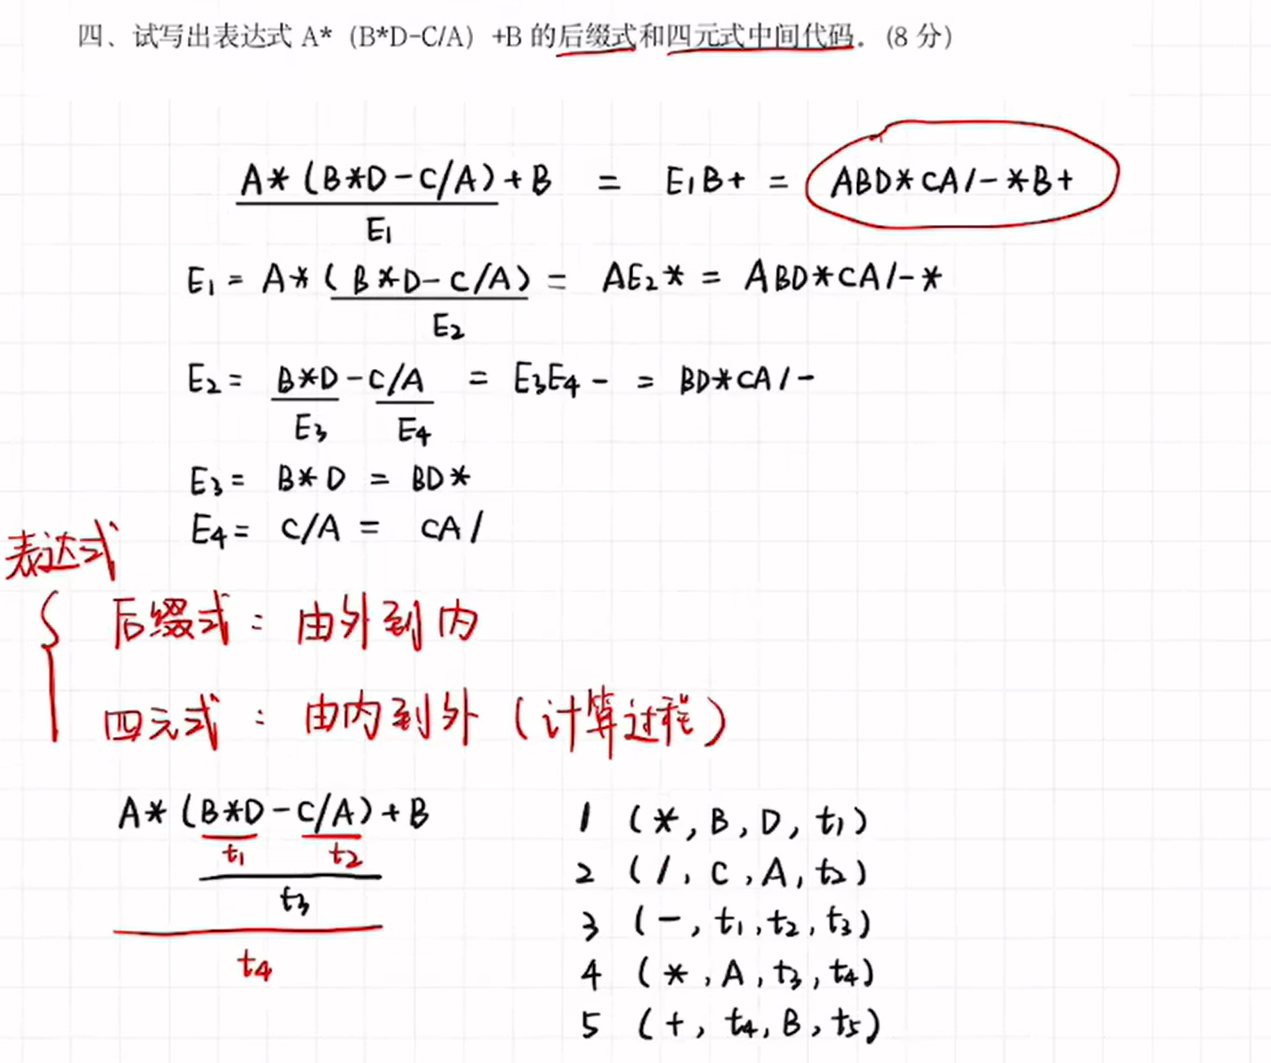 四、试写出表达式 A*（B*D-C/A）+B 的后缀式和四元式中间代码. (8 分)
A*(B*D-C/A)+B = E₁B+ = ABD*CA/-*B+
E₁
E₁ = A*(B*D-C/A) = AE₂* = ABD*CA/-*
E₂
E₂ = B*D-C/A = E₃E₄- = BD*CA/-
E₃ E₄
E₃ = B*D = BD*
E₄ = C/A = CA/
表达式
后缀式: 由外到内
四元式: 由内到外 (计算过程)
A*(B*D-C/A)+B
t₁ t₂
t₃
t₄
1 (*, B, D, t₁)
2 (/, C, A, t₂)
3 (-, t₁, t₂, t₃)
4 (*, A, t₃, t₄)
5 (+, t₄, B, t₅)